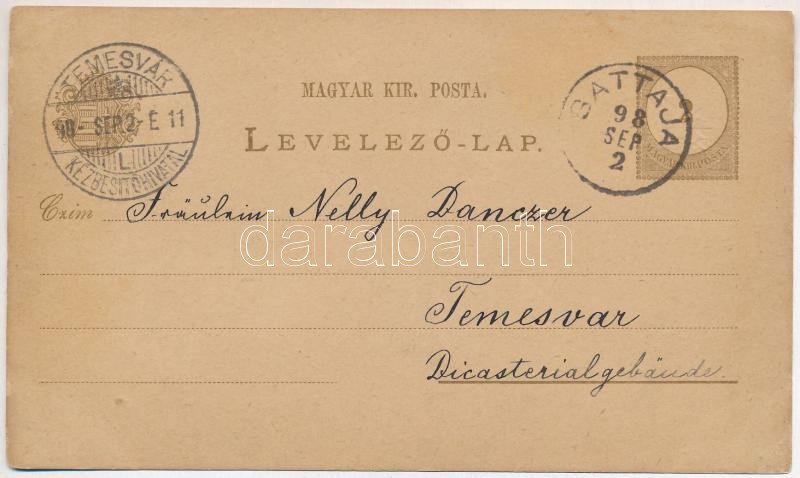 TEMESVÁR
98 - SEP 2 - E 11
L.
KÉZBESITŐHIVATAL
MAGYAR KIR. POSTA.
LEVELEZŐ-LAP.
GATTAJA
98
SEP
2
MAGYAR KIR. POSTA
Czím Fräulein Nelly Danczer
darabanth
Temesvar
Dicasterialgebäude.